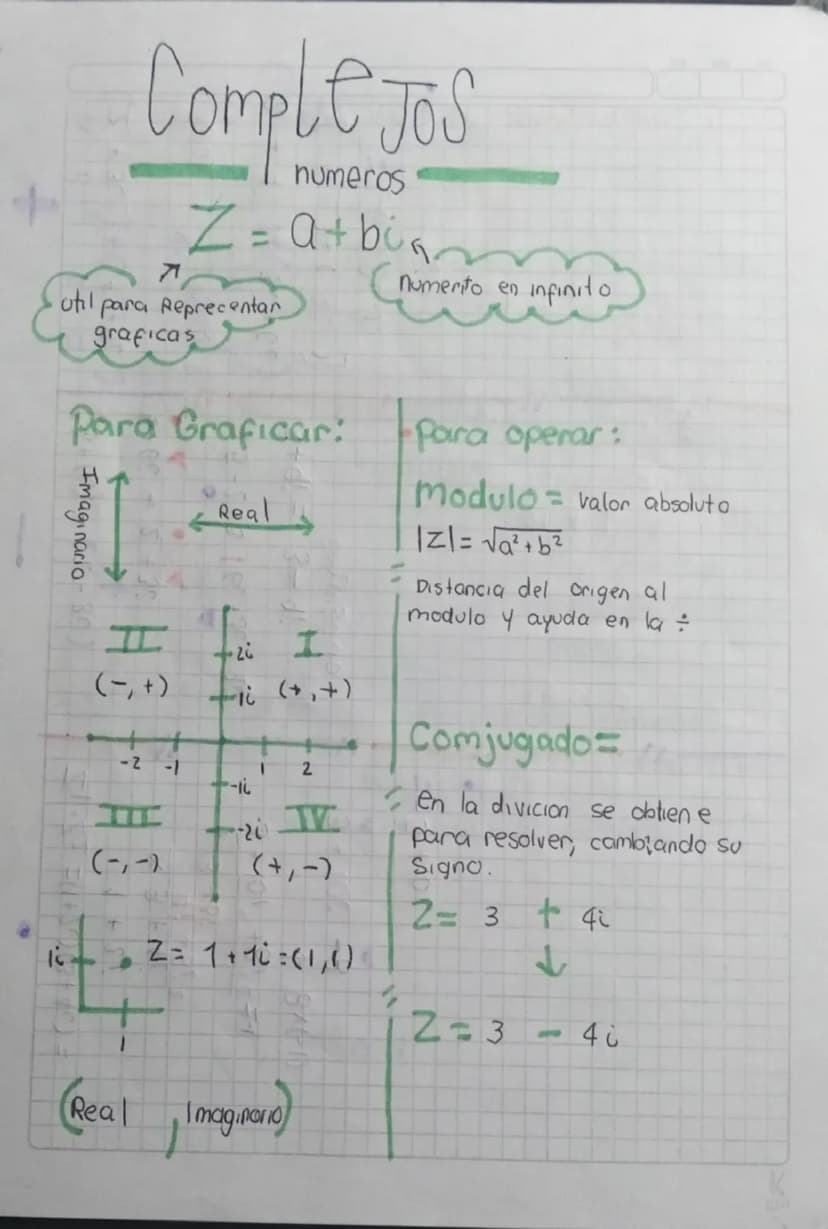 Complejos
numeros
Z = a+bi
Util para Reprecentar
graficas
Numerito en infinito
Para Graficar:
Imaginario
Real
II
I
(-,+)
(+,+)
2i
1i
-2 -1 1 2
-1i
-2i
III
IV
(-,-)
(+,-)
1i
Z= 1+1i=(1,1)
1
(Real , Imaginario)
Para operar:
Modulo = valor absoluto
|Z|= √a²+b²
= Distancia del origen al
modulo y ayuda en la ÷
Comjugado=
= en la divicion se obtiene
para resolver, cambiando su
signo.
Z= 3 + 4i
↓
=
Z = 3 - 4i